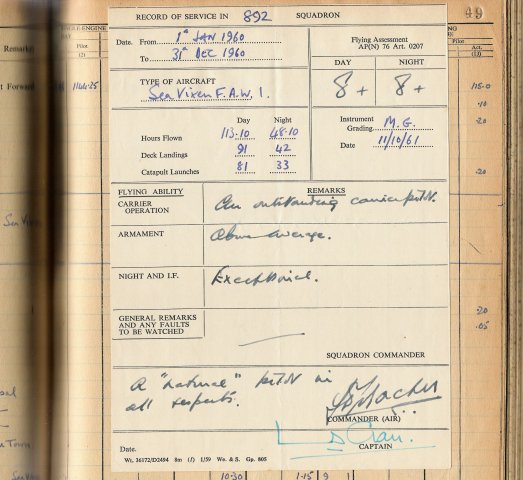 RECORD OF SERVICE IN 892 SQUADRON
49
Date. From 1st JAN 1960
To 31st DEC 1960
Flying Assessment
AP(N) 76 Art. 0207
DAY NIGHT
8+ 8+
TYPE OF AIRCRAFT
Sea Vixen F.A.W. 1.
Day Night
Hours Flown 113.10 48.10
Deck Landings 91 42
Catapult Launches 81 33
Instrument
Grading M.G.
Date 11/10/61
FLYING ABILITY REMARKS
CARRIER
OPERATION An outstanding carrier pilot.
ARMAMENT Above average.
NIGHT AND I.F. Exceptional.
GENERAL REMARKS
AND ANY FAULTS
TO BE WATCHED
SQUADRON COMMANDER
A "natural" pilot in
all respects.
COMMANDER (AIR)
CAPTAIN
Date.
Wt. 36172/D2494 8m (1) 1/59 Wo. & S. Gp. 805
Remarks
Pilot.
(2)
Forward
Pilot.
Act.
.20
.20
.20
.05
Town
10.30 1.15 9 1